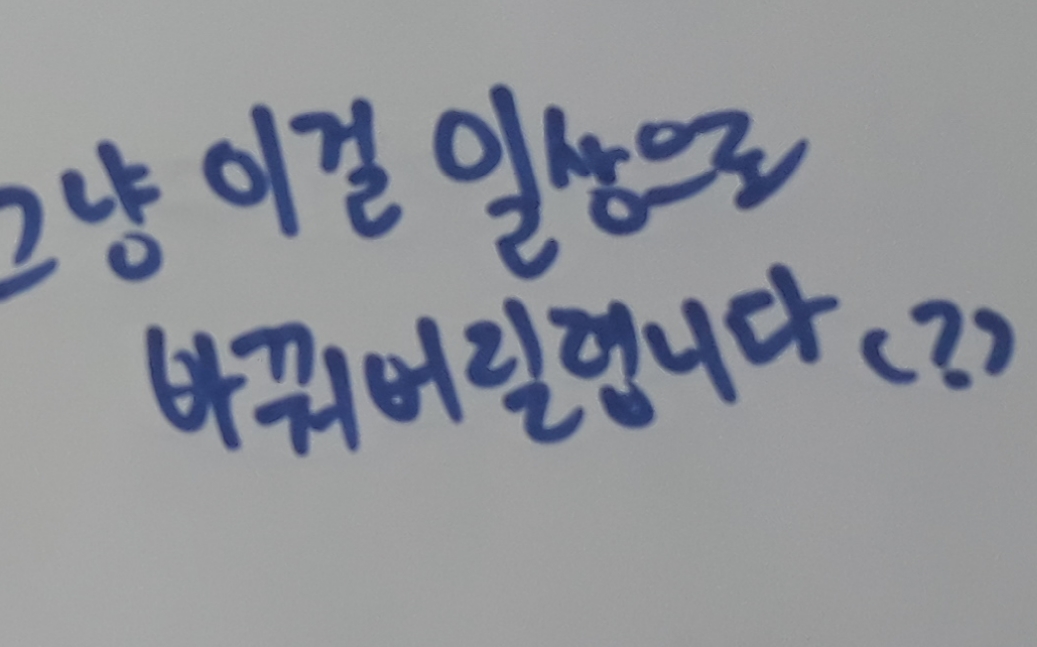 그냥 이걸 일상으로
바꿔버릴겁니다 (?)